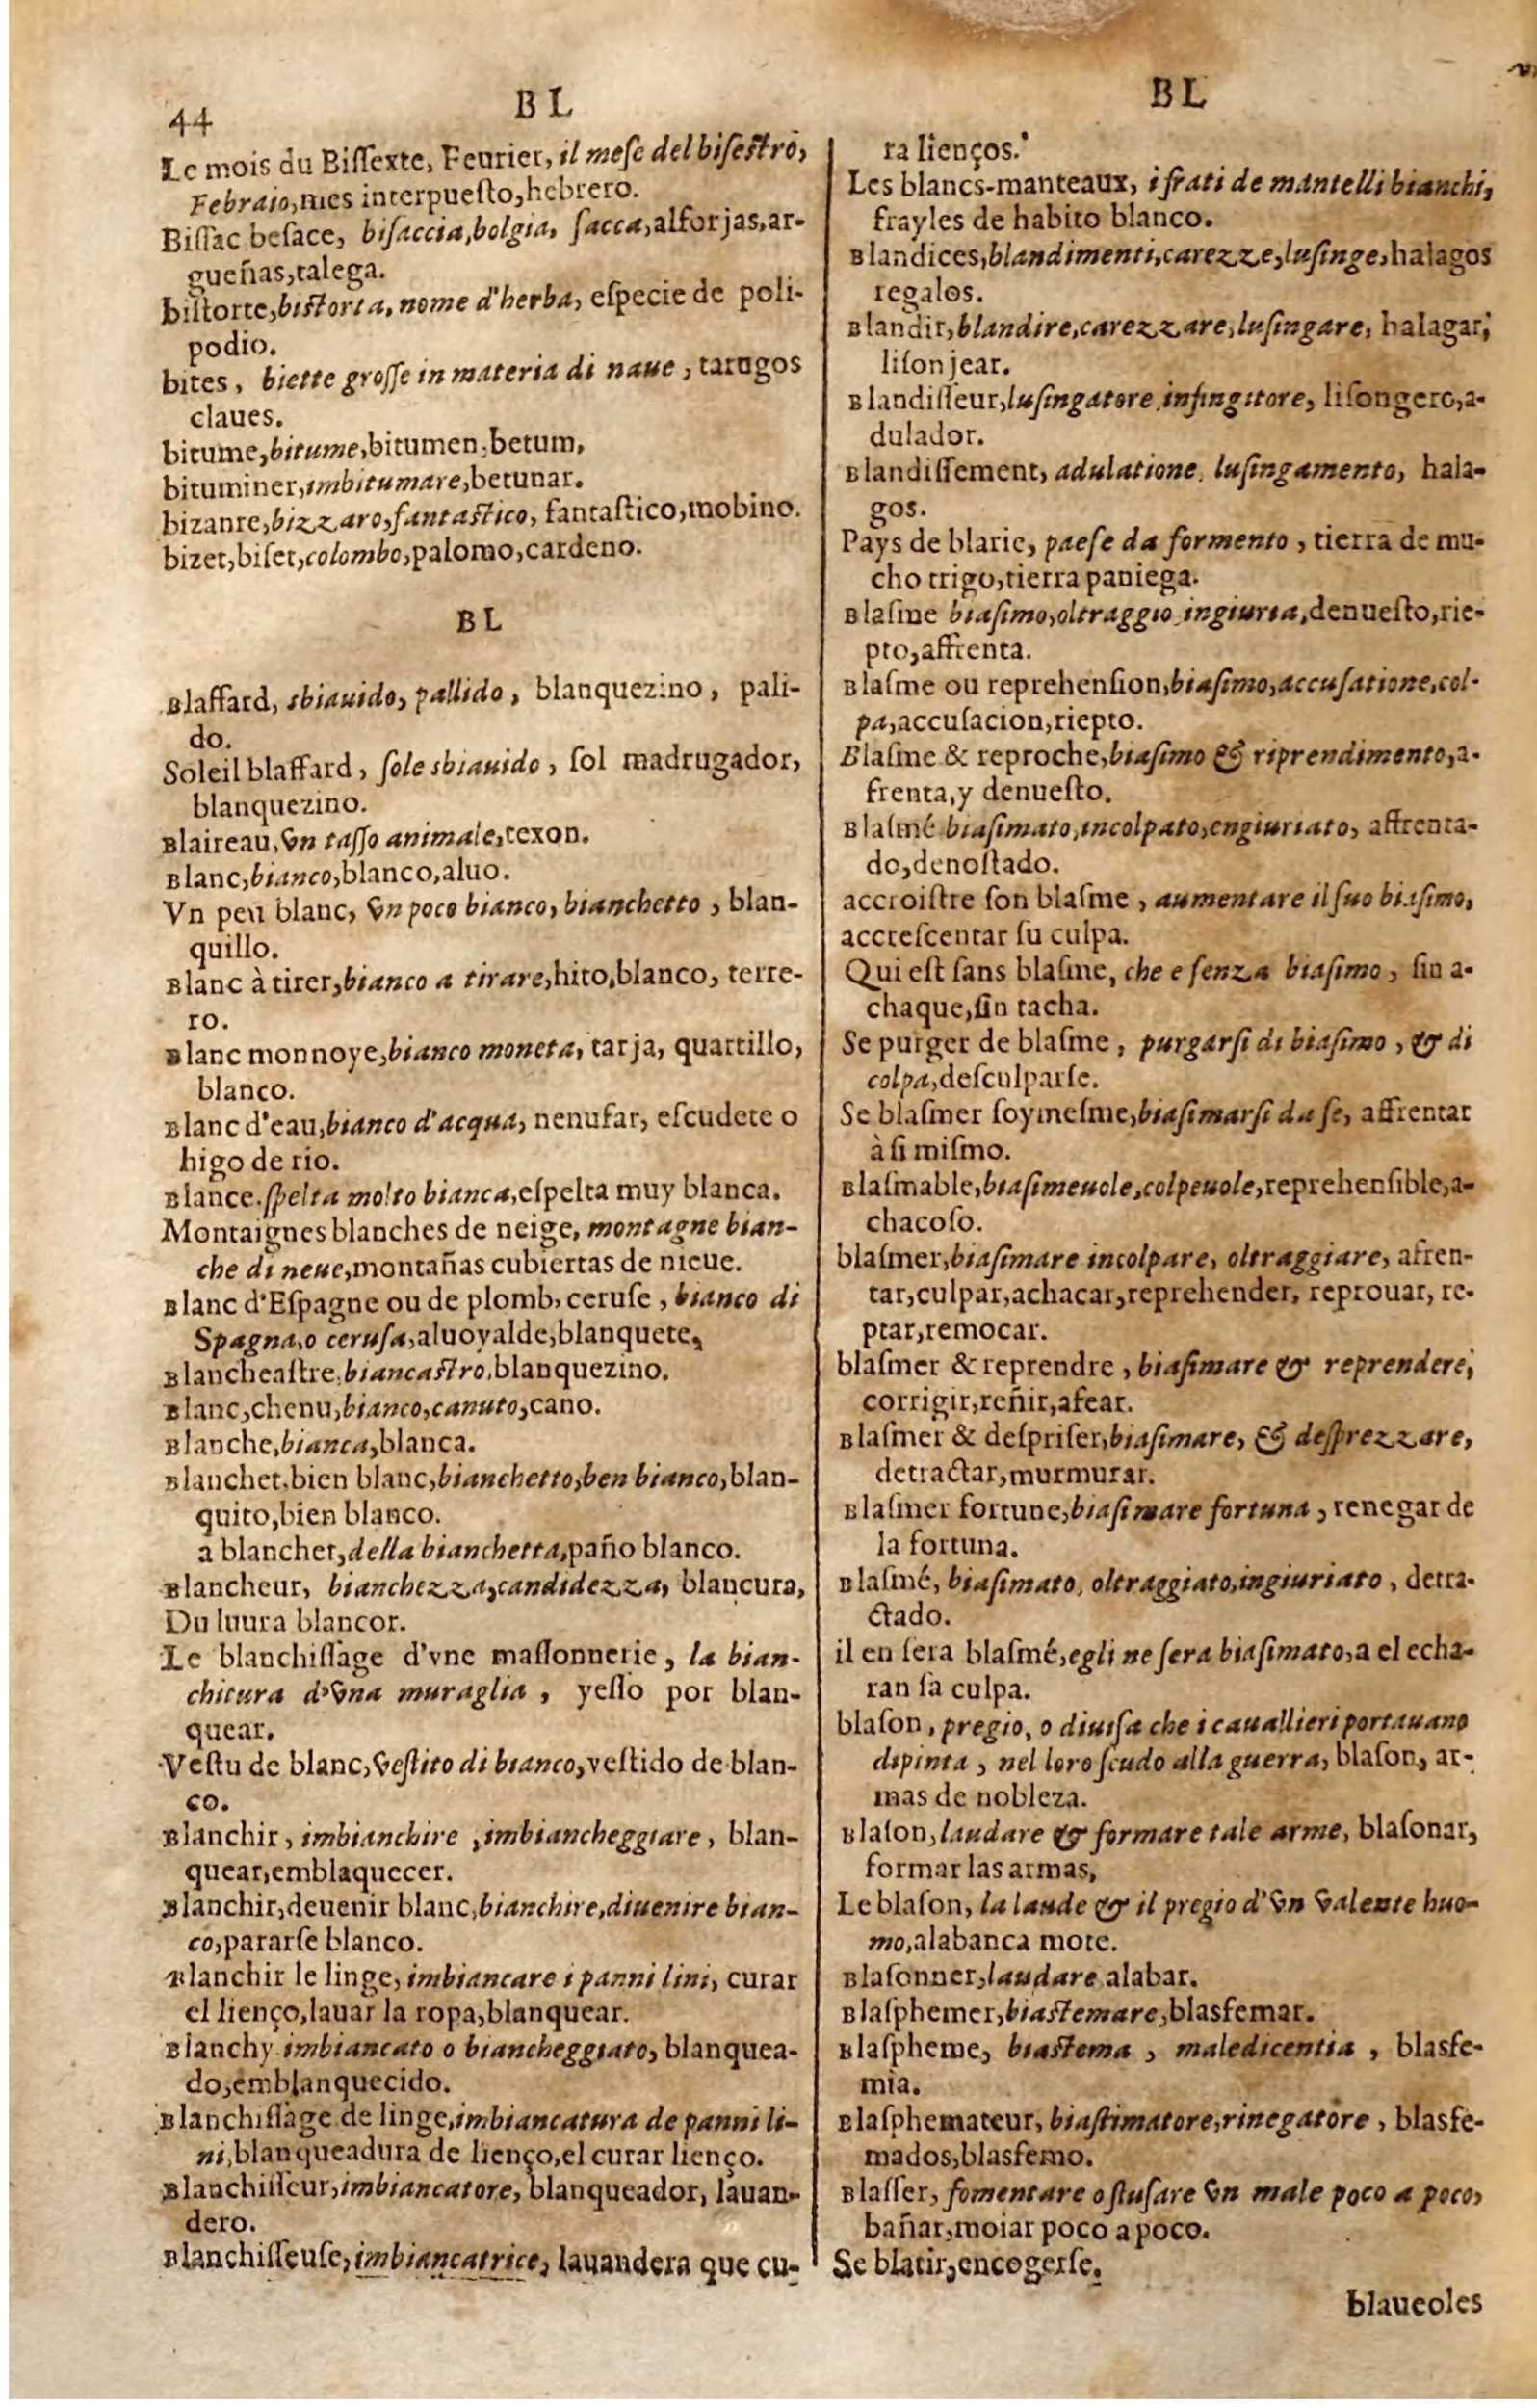 44
BL
Le mois du Biſſexte, Feurier, il meſe del biſeſtro,
Febraio, mes interpueſto, hebrero.
Biſſac beſace, biſaccia, bolgia, ſacca, alforjas, ar-
gueñas, talega.
biſtorte, biſtorta, nome d'herba, eſpecie de poli-
podio.
bites, biette groſſe in materia di naue, tarugos
claues.
bitume, bitume, bitumen, betum,
bituminer, imbitumare, betunar.
bizanre, bizzaro, fantaſtico, fantaſtico, mobino.
bizet, biſet, colombo, palomo, cardeno.
BL
Blaffard, sbiauido, pallido, blanquezino, pali-
do.
Soleil blaffard, ſole sbiauido, ſol madrugador,
blanquezino.
Blaireau, vn taſſo animale, texon.
Blanc, bianco, blanco, aluo.
Vn peu blanc, vn poco bianco, bianchetto, blan-
quillo.
Blanc à tirer, bianco a tirare, hito, blanco, terre-
ro.
Blanc monnoye, bianco moneta, tarja, quartillo,
blanco.
Blanc d'eau, bianco d'acqua, nenufar, eſcudete o
higo de rio.
Blance. ſpelta molto bianca, eſpelta muy blanca.
Montaignes blanches de neige, montagne bian-
che di neue, montañas cubiertas de nieue.
Blanc d'Eſpagne ou de plomb, ceruſe, bianco di
Spagna, o ceruſa, aluoyalde, blanquete,
Blancheaſtre, biancaſtro, blanquezino.
Blanc, chenu, bianco, canuto, cano.
Blanche, bianca, blanca.
Blanchet, bien blanc, bianchetto, ben bianco, blan-
quito, bien blanco.
a blanchet, della bianchetta, paño blanco.
Blancheur, bianchezza, candidezza, blancura,
Du luura blancor.
Le blanchiſſage d'vne maſſonnerie, la bian-
chitura d'vna muraglia, yeſſo por blan-
quear.
Veſtu de blanc, veſtito di bianco, veſtido de blan-
co.
Blanchir, imbianchire, imbiancheggiare, blan-
quear, emblaquecer.
Blanchir, deuenir blanc, bianchire, diuenire bian-
co, pararſe blanco.
Blanchir le linge, imbiancare i panni lini, curar
el lienço, lauar la ropa, blanquear.
Blanchy imbiancato o biancheggiato, blanquea-
do, emblanquecido.
Blanchiſſage de linge, imbiancatura de panni li-
ni, blanqueadura de lienço, el curar lienço.
Blanchiſſeur, imbiancatore, blanqueador, lauan-
dero.
Blanchiſſeuſe, imbiancatrice, lauandera que cu-
BL
ra lienços.
Les blancs-manteaux, i frati de mantelli bianchi,
frayles de habito blanco.
Blandices, blandimenti, carezze, luſinge, halagos
regalos.
Blandir, blandire, carezzare, luſingare, halagar,
liſonjear.
Blandiſſeur, luſingatore, inſingitore, liſongero, a-
dulador.
Blandiſſement, adulatione, luſingamento, hala-
gos.
Pays de blarie, paeſe da formento, tierra de mu-
cho trigo, tierra paniega.
Blaſme biaſimo, oltraggio, ingiuria, denueſto, rie-
pto, affrenta.
Blaſme ou reprehenſion, biaſimo, accuſatione, col-
pa, accuſacion, riepto.
Blaſme & reproche, biaſimo & riprendimento, a-
frenta, y denueſto.
Blaſmé biaſimato, incolpato, engiuriato, affrenta-
do, denoſtado.
accroiſtre ſon blaſme, aumentare il ſuo biaſimo,
accreſcentar ſu culpa.
Qui eſt ſans blaſme, che e ſenza biaſimo, ſin a-
chaque, ſin tacha.
Se purger de blaſme, purgarſi di biaſimo, & di
colpa, deſculparſe.
Se blaſmer ſoymeſme, biaſimarſi da ſe, affrentar
à ſi miſmo.
Blaſmable, biaſimeuole, colpeuole, reprehenſible, a-
chacoſo.
blaſmer, biaſimare incolpare, oltraggiare, afren-
tar, culpar, achacar, reprehender, reprouar, re-
ptar, remocar.
blaſmer & reprendre, biaſimare & reprendere,
corrigir, reñir, afear.
Blaſmer & deſpriſer, biaſimare, & deſprezzare,
detractar, murmurar.
Blaſmer fortune, biaſimare fortuna, renegar de
la fortuna.
Blaſmé, biaſimato, oltraggiato, ingiuriato, detra-
ctado.
il en ſera blaſmé, egli ne ſera biaſimato, a el echa-
ran ſa culpa.
blaſon, pregio, o diuiſa che i cauallieri portauano
dipinta, nel loro ſcudo alla guerra, blaſon, ar-
mas de nobleza.
Blaſon, laudare & formare tale arme, blaſonar,
formar las armas,
Le blaſon, la laude & il pregio d'vn valente huo-
mo, alabanca mote.
Blaſonner, laudare alabar.
Blaſphemer, biaſtemare, blasfemar.
Blaſpheme, biaſtema, maledicentia, blasfe-
mia.
Blaſphemateur, biaſtimatore, rinegatore, blasfe-
mados, blasfemo.
Blaſſer, fomentare o ſtufare vn male poco a poco,
bañar, moiar poco a poco.
Se blatir, encogerſe.
blaueoles